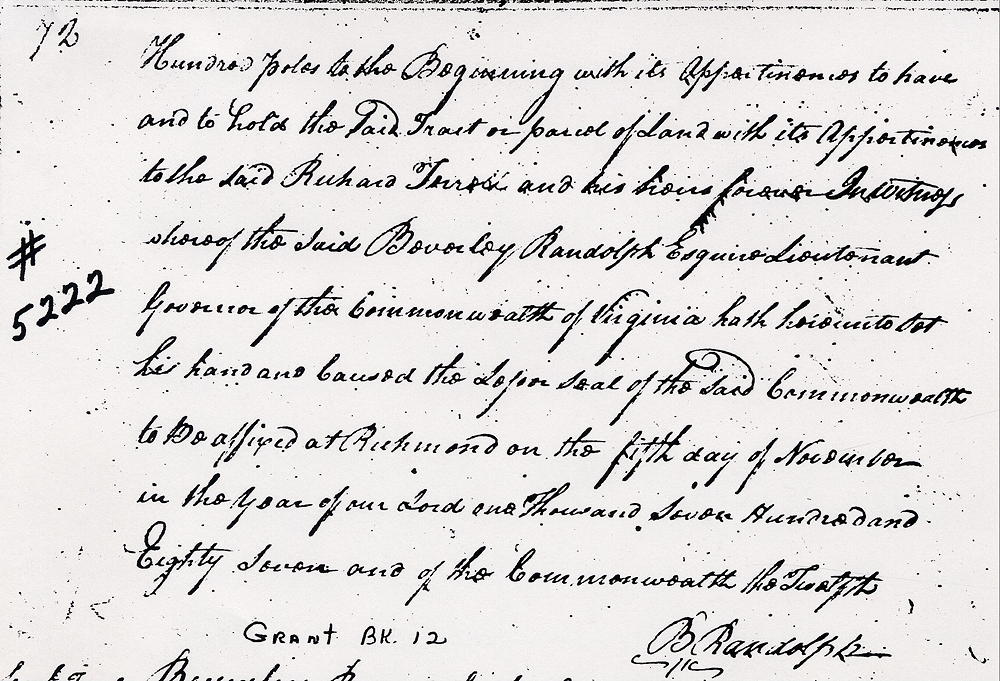 72
Hundred poles to the Beginning with its Appertinences to have
and to hold the Said Tract or parcel of Land with its Appertinences
to the Said Richard Terrell and his heirs forever In Witness
whereof the Said Beverley Randolph Esquire Lieutenant
Governor of the Commonwealth of Virginia hath hereunto Set
his hand and Caused the Lesser Seal of the Said Commonwealth
to Be affixed at Richmond on the fifth day of November
in the Year of our Lord one Thousand Seven Hundred and
Eighty Seven and of the Commonwealth the Twelfth
B. Randolph
# 5222
GRANT BK. 12